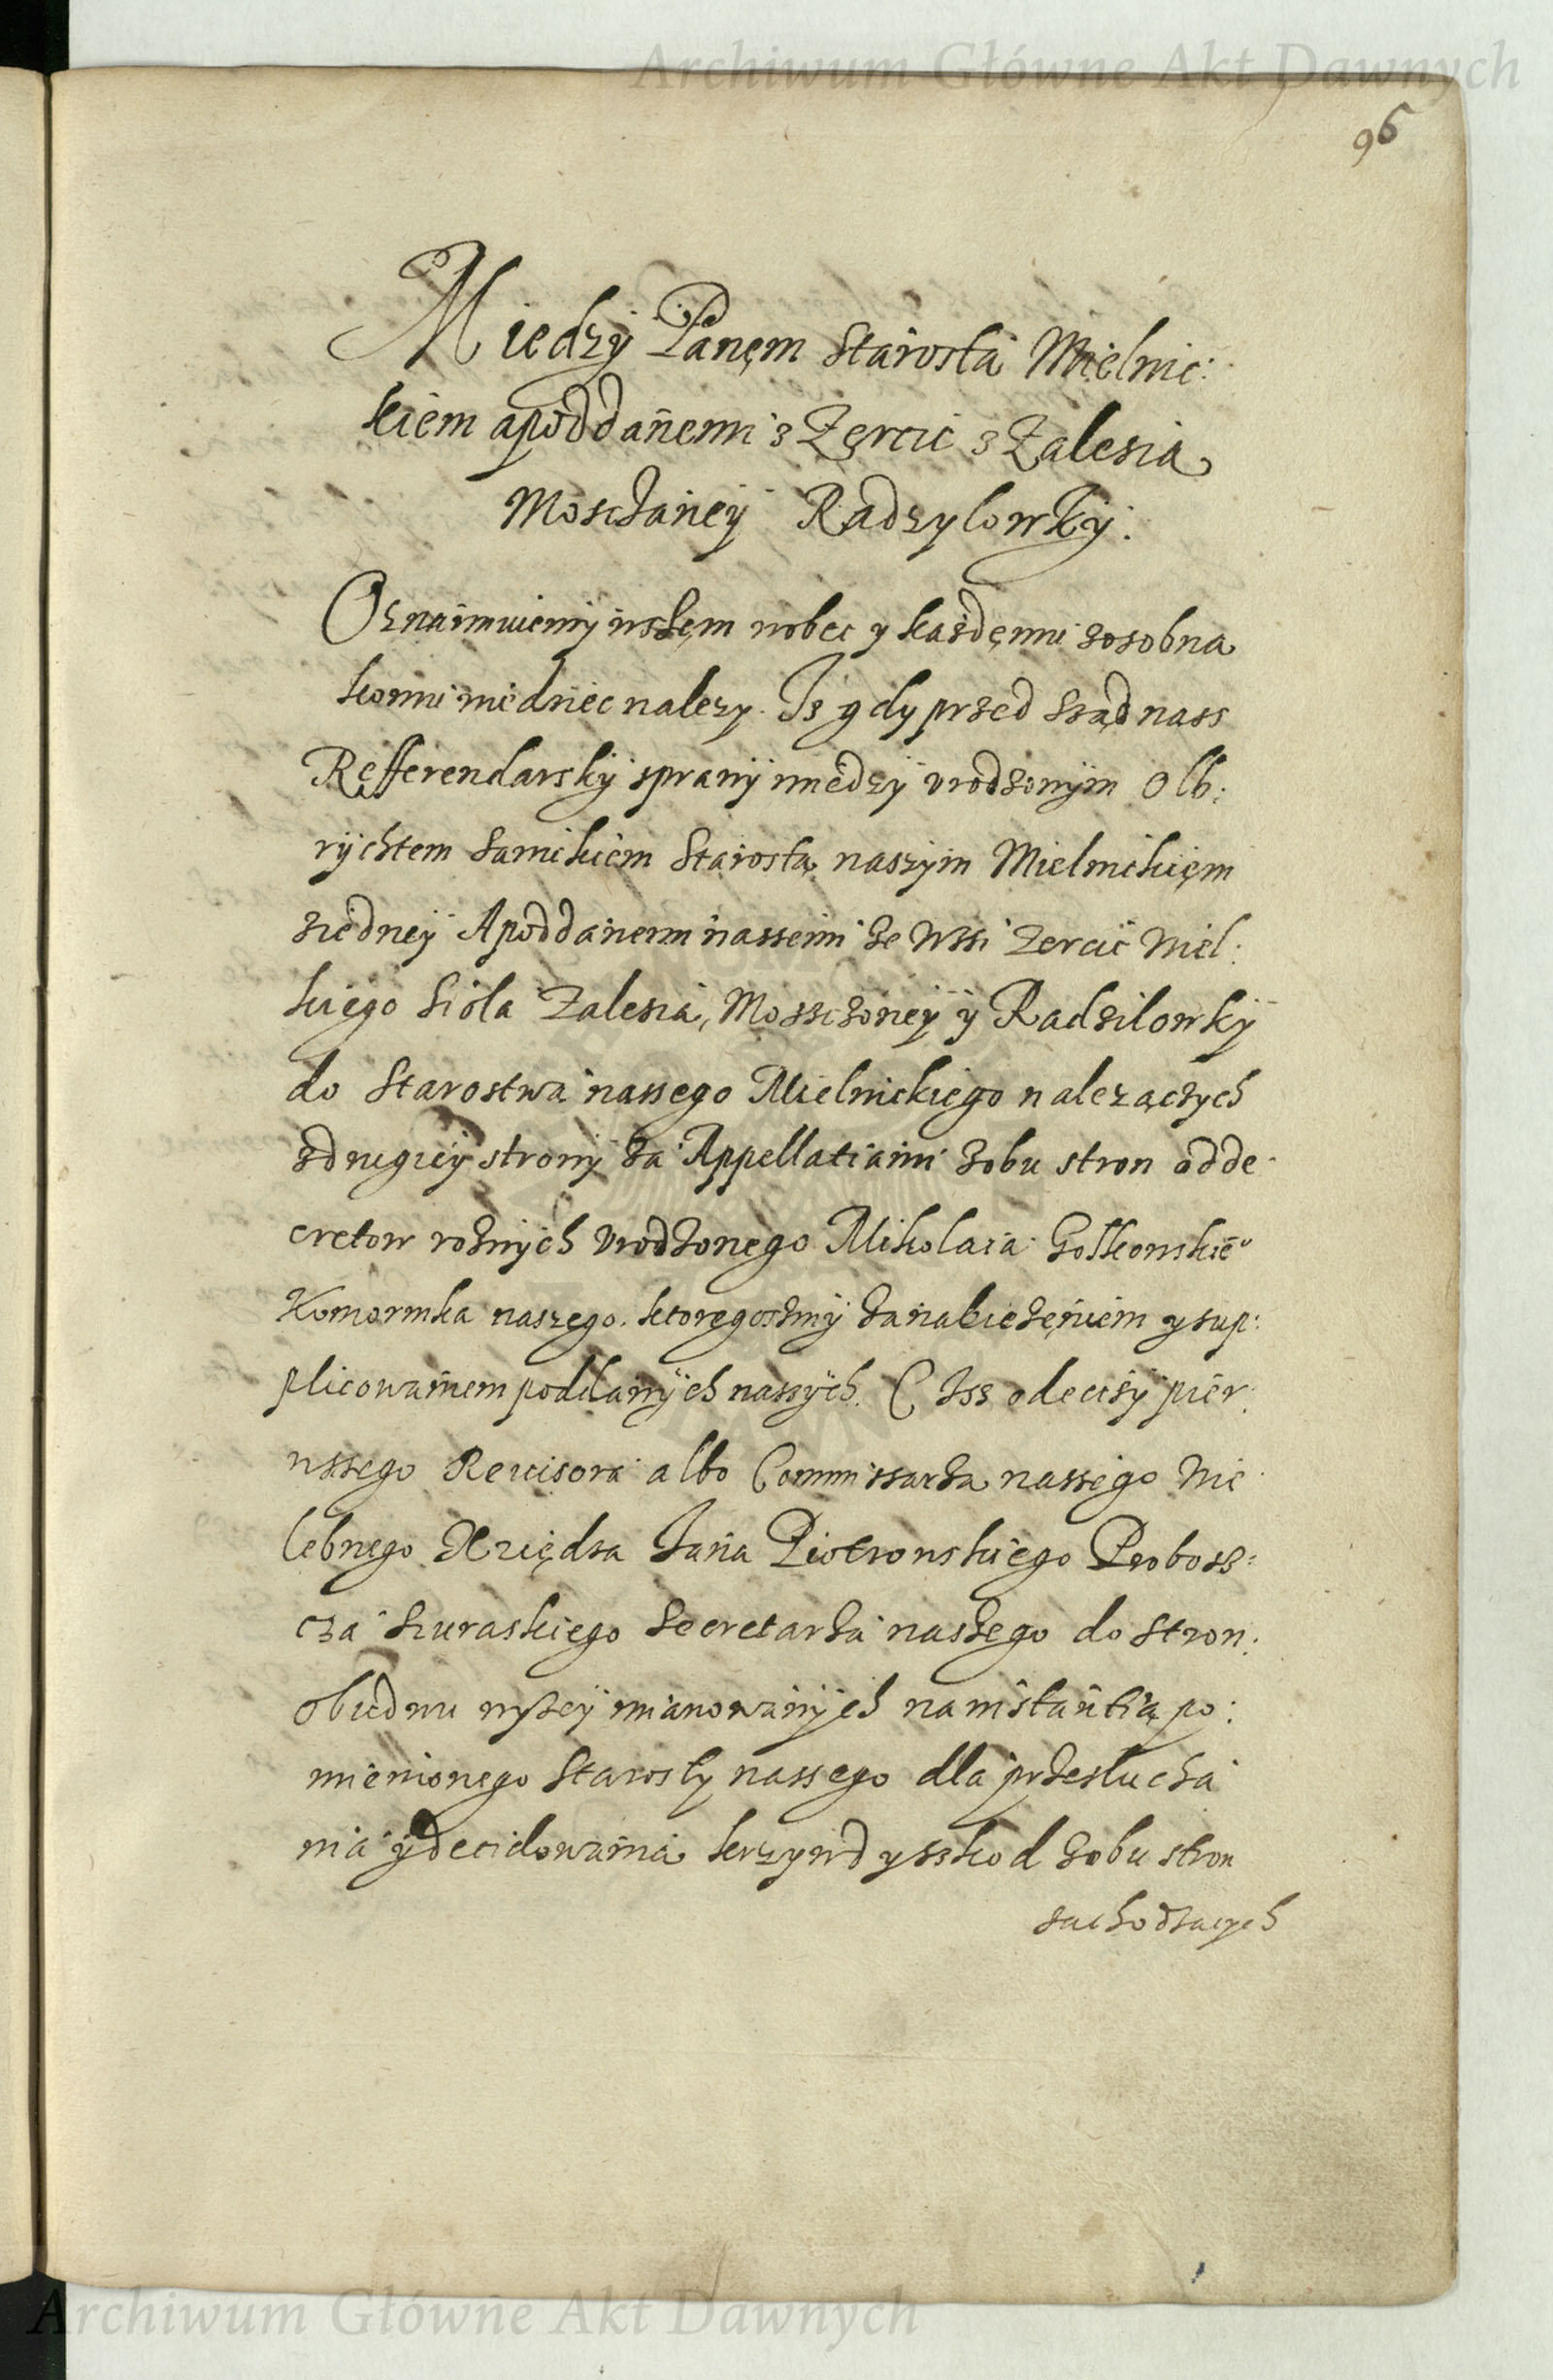 Archiwum Główne Akt Dawnych
96
Miedzÿ Panęm Starostą Mielnic:
kiem apoddanemi z Zercic z Zalesia
Moszczaneÿ Radzylowkÿ.
Oznaimuiemÿ wszem wobec y kazdęmu zosobna
komu wiedziec nalezy. Iz gdy przed Sząd nass
Refferendarskÿ sprawÿ miedzÿ vrodzonÿm Olb:
rÿchtem Starostą naszÿm Mielnickięm
ziedneÿ Apoddanemi nassemi ze Wssi Zercic Wiel:
kiego Siola Zalesia, Mosszczoneÿ ÿ Radzilowkÿ
do Starostwa nassego Mielnickiego nalezączych
zdrugieÿ stronÿ za Appellatiami zobu stron odde
cretow roznÿch Vrodzonego Mikolaia
Komornika naszego. ktoręgoszmÿ zanabiezęniem y sup:
plicowaniem poddanÿch nassÿch. odeciszÿ pier
wssego Rewisora albo Commissarza nassego Wie
lebnego Xziędza Jana Piotrowskiego Probosz:
cza Suraskiego Secretarza naszego do Stron
obudwu wyzeÿ mianowanÿch nainstantią po:
mienionego Starosty nassego dla przeslucha
nia ÿ decidowania krzywd y sskod zobu stron
zachodzacych
Archiwum Główne Akt Dawnych